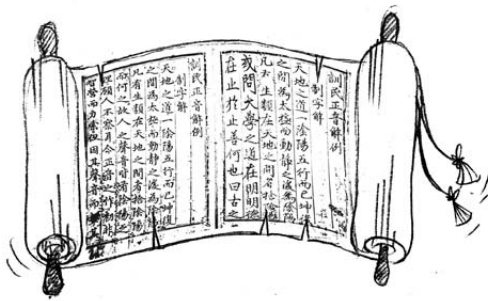 訓民正音解例
制字解
天地之道一陰陽五行而已坤復
之間為太極而動靜之後為陰陽
凡有生類在天地之間者捨陰
或問大學之道在明明德
在止於止善何也曰古之
訓民正音解例
制字解
天地之道一陰陽五行而已坤復
之間為太極而動靜之後為陰陽
凡有生類在天地之間者捨陰陽
而何之故人之聲音皆有陰陽之
理顧人不察耳今正音之作初非
智營而力索但因其聲音而